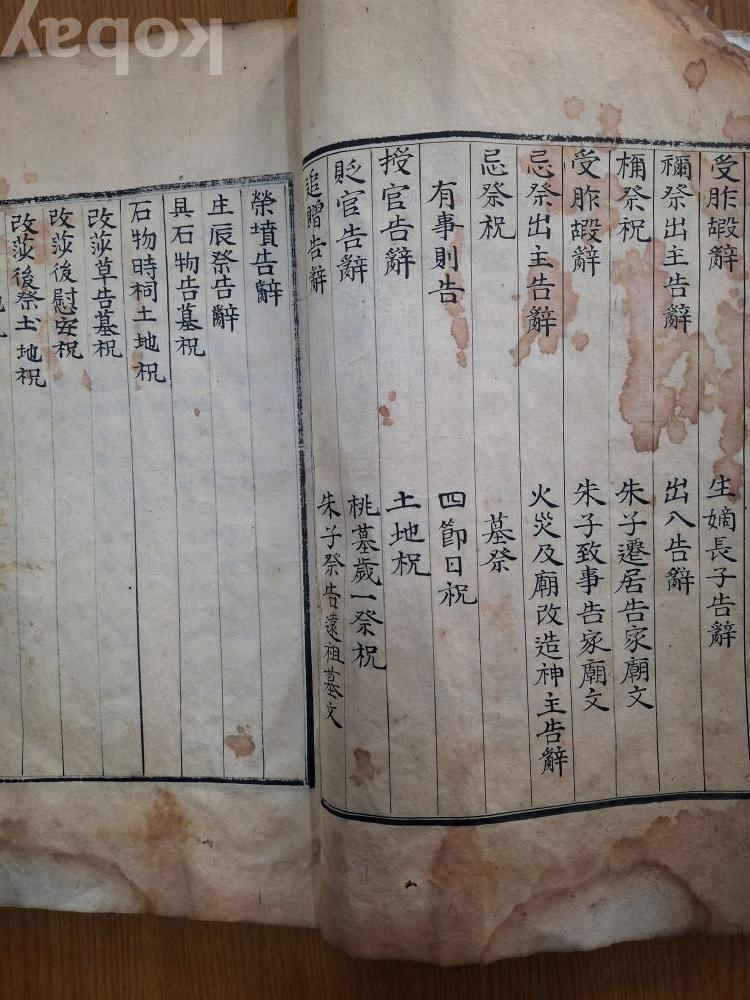 kobay
受胙嘏辭 生嫡長子告辭
禰祭出主告辭 出入告辭
禰祭祝 朱子遷居告家廟文
受胙嘏辭 朱子致事告家廟文
忌祭出主告辭 火災及廟改造神主告辭
忌祭祝 墓祭
有事則告 四節日祝
授官告辭 土地祝
貶官告辭 祧墓歲一祭祝
追贈告辭 朱子祭告遠祖墓文
榮墳告辭
生辰祭告辭
具石物告墓祝
石物時祠土地祝
改莎草告墓祝
改莎後慰安祝
改莎後祭土地祝